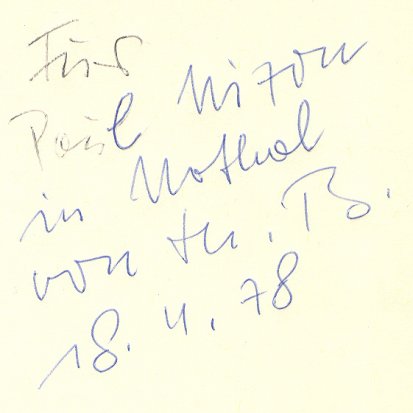 Für
Paul Nizon
in Nathal
von Th. B.
18. 4. 78